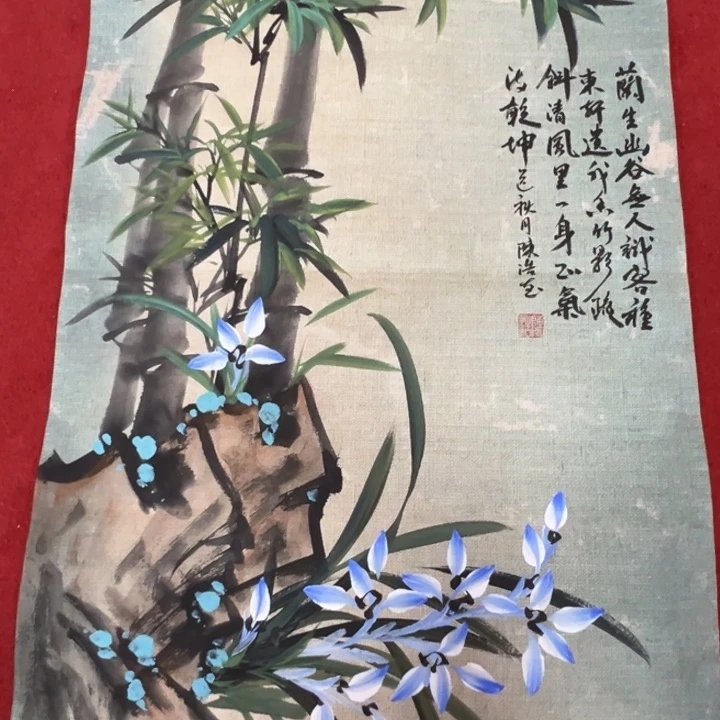 蘭生幽谷無人識客種
東軒遺我香竹影
斜清風里一身正氣
滿乾坤 秋月陳浩